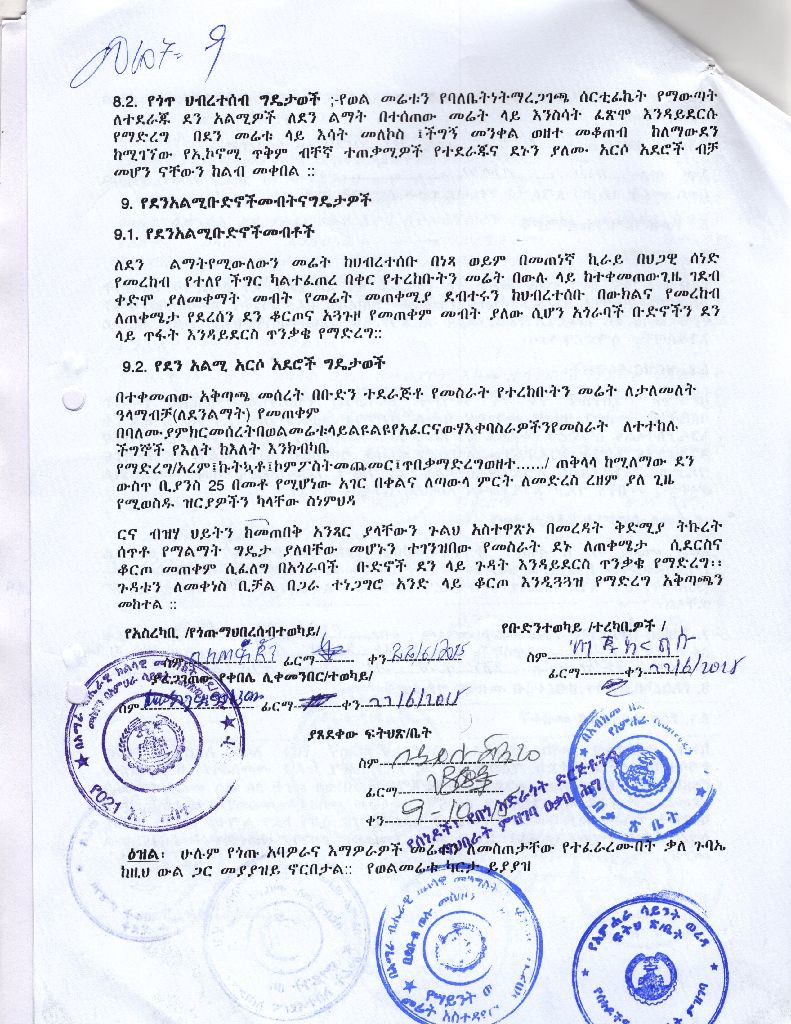 8.2. የጎጥ ህብረተሰብ ግዴታወች ;-የወል መሬቱን የባለቤትነትማረጋገጫ ሰርቲፊኬት የማውጣት
ለተደራጁ ደን አልሚዎች ለደን ልማት በተሰጠው መሬት ላይ እንስሳት ፈጽሞ እንዳይደርሱ
የማድረግ በደን መሬቱ ላይ እሳት መለኮስ ፤ችግኝ መንቀል ወዘተ መቆጠብ ከለማውደን
ከሚገኘው የኢ.ኮኖሚ ጥቅም ብቸኛ ተጠቃሚዎች የተደራጁና ደኑን ያለሙ አርሶ አደሮች ብቻ
መሆን ናቸውን ከልብ መቀበል ::
9. የደንአልሚቡድኖችመብትናግዴታዎች
9.1. የደንአልሚቡድኖችመብቶች
ለደን ልማትየሚውለውን መሬት ከህብረተሰቡ በነጻ ወይም በመጠነኛ ኪራይ በህጋዊ ሰነድ
የመረከብ የተለየ ችግር ካልተፈጠረ በቀር የተረከቡትን መሬት በውሉ ላይ ከተቀመጠውጊዜ ገደብ
ቀድሞ ያለመቀማት መብት የመሬት መጠቀሚያ ደብተሩን ከህብረተሰቡ በውክልና የመረከብ
ለጠቀሜታ የደረሰን ደን ቆርጦና አጓጉዞ የመጠቀም መብት ያለው ሲሆን አጎራባች ቡድኖችን ደን
ላይ ጥፋት እንዳይደርስ ጥንቃቄ የማድረግ::
9.2. የደን አልሚ አርሶ አደሮች ግዴታወች
በተቀመጠው አቅጣጫ መሰረት በቡድን ተደራጅቶ የመስራት የተረከቡትን መሬት ለታለመለት
ዓላማብቻ(ለደንልማት) የመጠቀም
በባለሙያምክርመሰረትበወልመሬቱላይልዩልዩየአፈርናውሃእቀባስራዎችንየመስራት ለተተከሉ
ችግኞች የእለት ከእለት እንክብካቤ
የማድረግ/አረም፤ኩትኳቶ፤ኮምፖስትመጨመር፤ጥበቃማድረግወዘተ....../ ጠቅላላ ከሚለማው ደን
ውስጥ ቢያንስ 25 በመቶ የሚሆነው አገር በቀልና ለጣውላ ምርት ለመድረስ ረዘም ያለ ጊዜ
የሚወስዱ ዝርያዎችን ካላቸው ስነምህዳ
ርና ብዝሃ ህይትን ከመጠበቅ አንጻር ያላቸውን ጉልህ አስተዋጽኦ በመረዳት ቅድሚያ ትኩረት
ሰጥቶ የማልማት ግዴታ ያለባቸው መሆኑን ተገንዝበው የመስራት ደኑ ለጠቀሜታ ሲደርስና
ቆርጦ መጠቀም ሲፈለግ በአጎራባች ቡድኖች ደን ላይ ጉዳት እንዳይደርስ ጥንቃቄ የማድረግ፡፡
ጉዳቱን ለመቀነስ ቢቻል በጋራ ተነጋግሮ አንድ ላይ ቆርጦ እንዲጓጓዝ የማድረግ አቅጣጫን
መከተል ::
የአስረካቢ /የጎጡማህበረሰብተወካይ/ የቡድንተወካይ /ተረካቢዎች /
ስም ፊርማ ቀን 22/6/2015 ስም
ፊርማ ቀን 22/6/2015
ያረጋገጠው የቀበሌ ሊቀመንበር/ተወካይ/
ስም ፊርማ ቀን 22/6/2015
ያጸደቀው ፍትህጽ/ቤት
ስም
ፊርማ
ቀን 9-10/15
ዕዝል፡ ሁሉም የጎጡ አባዎራና እማዎራዎች መሬቱን ለመስጠታቸው የተፈራረሙበት ቃለ ጉባኤ
ከዚህ ውል ጋር መያያዝይ ኖርበታል:: የወልመሬቱ ካርታ ይያያዝ